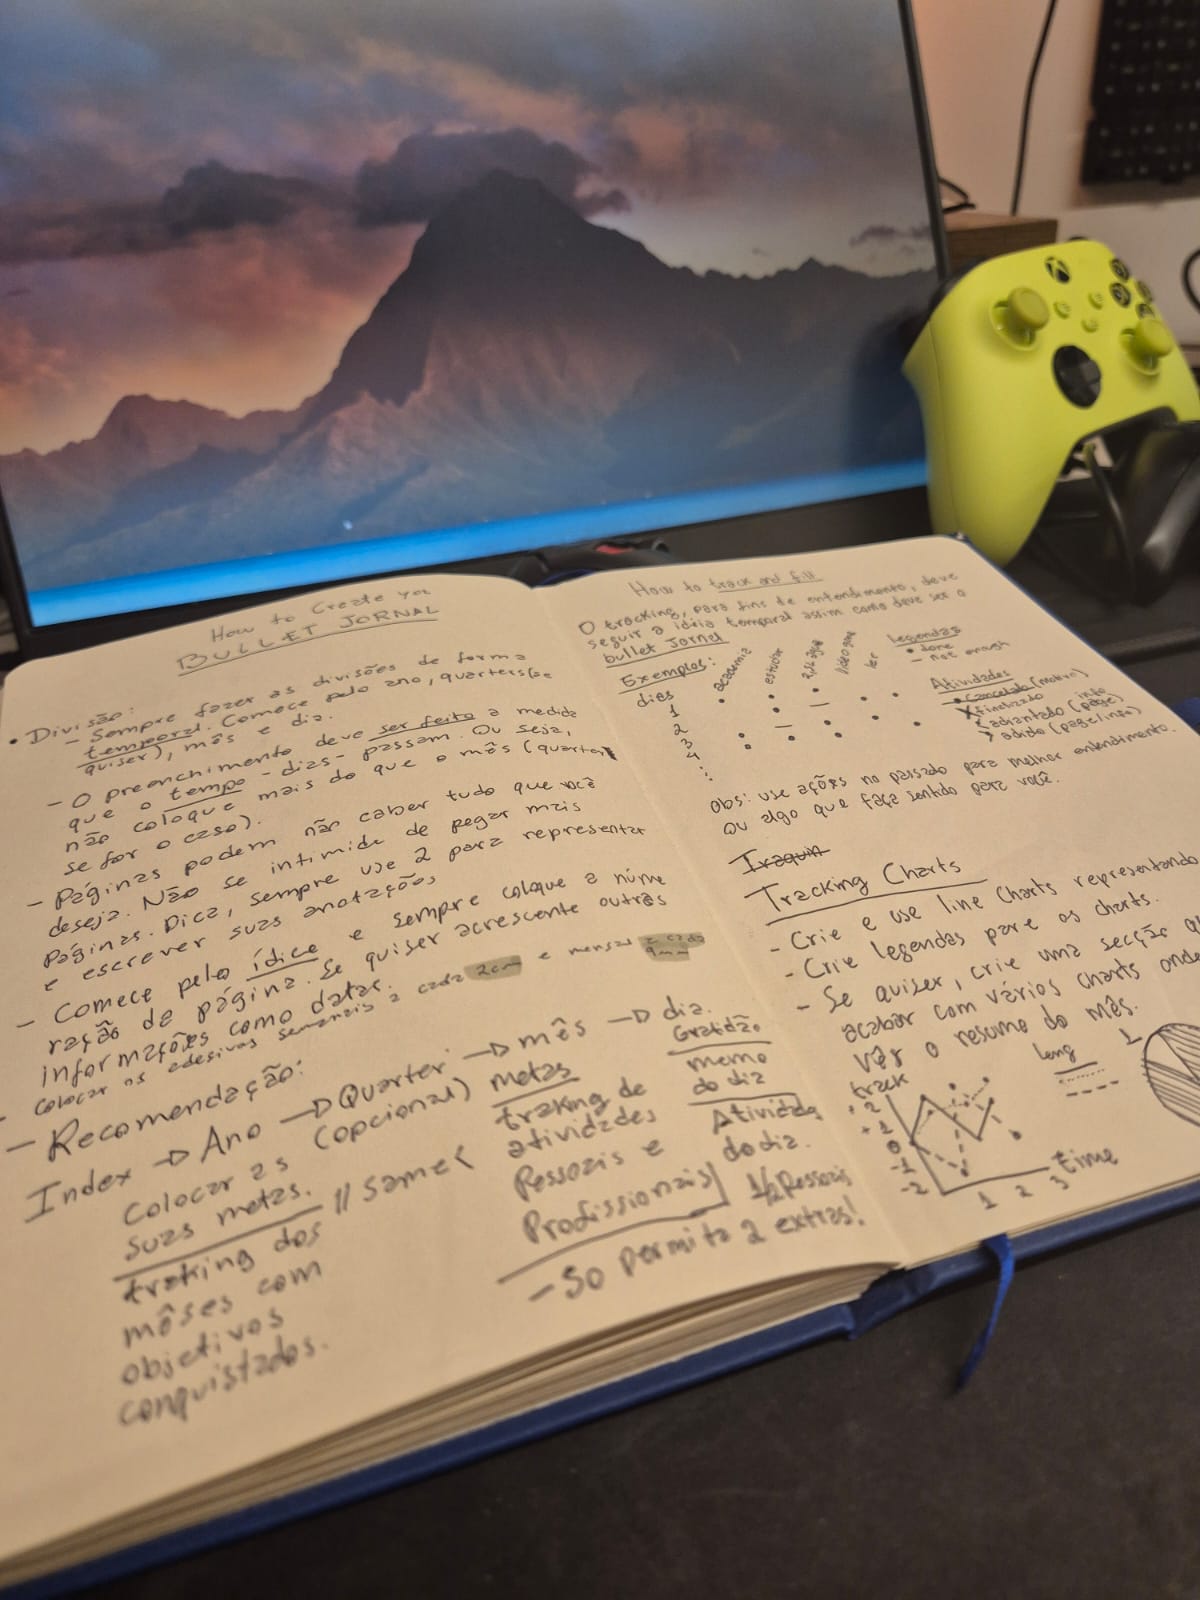 How to Create you
BULLET JORNAL
• Divisão:
- Sempre fazer as divisões de forma
temporal. Comece pelo ano, quarters (se
quiser), mês e dia.
- O preenchimento deve ser feito a medida
que o tempo - dias - passam. Ou seja,
não coloque mais do que o mês (quarter,
se for o caso).
- Páginas podem não caber tudo que você
deseja. Não se intimide de pegar mais
páginas. Dica, sempre use 2 para representar
e escrever suas anotações
- Comece pelo ídice e sempre coloque a nume
ração de página. Se quiser acrescente outras
informações como datas.
- Colocar os adesivos semanais a cada 2cm e mensais a cada
9mm
- Recomendação:
Index → Ano → Quarter → mês → dia.
(opcional)
Colocar as
suas metas.
traking dos
mêses com
objetivos
conquistados.
// same <
metas
traking de
atividades
Pessoais e
Profissionais
Gratidão
memo
do dia
Atividades
do dia.
1/2 Pessoais
- So permita 2 extras!
How to track and fill
O tracking, para fins de entendimento, deve
seguir a ideia temporal assim como deve ser o
bullet Jornal
Exemplos:
dias academia estudar video game ler
1
2
3
4
Legendas
• done
— not enough
Atividades
• Cancelado (motivo)
X finalizado
< adiantado (page) info
> adido (page/info)
obs: use ações no passado para melhor entendimento.
Ou algo que faça sentido para você.
Traquin
Tracking Charts
- Crie e use line charts representando
- Crie legendas para os charts.
- Se quiser, crie uma secção
acabar com vários charts onde
ver o resumo do mês.
track
+2
+1
0
-1
-2
1 2 3 time
leng
1